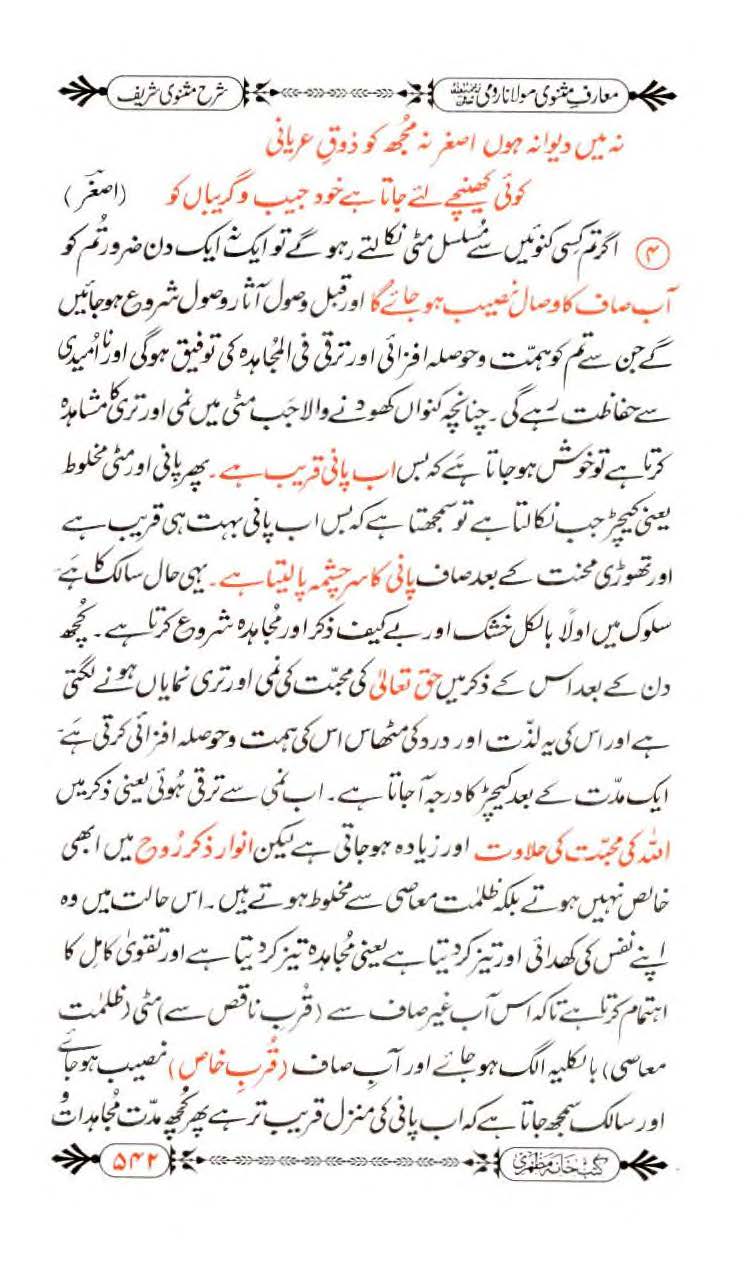 معارفِ مثنوی مولانا رومی رحمۃ اللہ علیہ
شرح مثنوی شریف
نہ میں دیوانہ ہوں اصغر نہ مُجھ کو ذوقِ عریانی
کوئی کھینچے لئے جاتا ہے خود جیب و گریباں کو (اصغرؔ)
۴ اگر تم کِسی کنوئیں سے مُسلسل مٹی نکالتے رہو گے تو ایک نہ ایک دن ضرور تُم کو
آب صاف کا وصال نصیب ہو جائے گا اور قبل وصول آثارِ وصول شروع ہو جائیں
گے جن سے تُم کو ہمّت و حوصلہ افزائی اور ترقی فی المُجاہدہ کی توفیق ہوگی اور نا اُمیدی
سے حفاظت رہے گی۔ چنانچہ کنواں کھودنے والا جب مٹی میں نمی اور تری کا مشاہدہ
کرتا ہے تو خوش ہو جاتا ہَے کہ بس اب پانی قریب ہے۔ پھر پانی اور مٹی مخلوط
یعنی کیچڑ جب نکالتا ہے تو سمجھتا ہے کہ بس اب پانی بہت ہی قریب ہے
اور تھوڑی محنت کے بعد صاف پانی کا سر چشمہ پا لیتا ہے۔ یہی حال سالک کا ہَے
سلوک میں اولاً بالکل خشک اور بے کیف ذکر اور مُجاہدہ شروع کرتا ہے۔ کُچھ
دن کے بعد اس کے ذکر میں حق تعالیٰ کی محبّت کی نمی اور تری نمایاں ہونے لگتی
ہے اور اس کی یہ لذّت اور درد کی مٹھاس اس کی ہمت و حوصلہ افزائی کرتی ہَے
ایک مدّت کے بعد کیچڑ کا درجہ آ جاتا ہے۔ اب نمی سے ترقی ہُوئی یعنی ذکر میں
اللہ کی محبّت کی حلاوت اور زیادہ ہو جاتی ہے لیکن انوار ذکر رُوح میں ابھی
خالص نہیں ہوتے بلکہ ظلمت معاصی سے مخلوط ہوتے ہیں۔ اس حالت میں وہ
اپنے نفس کی کھدائی اور تیز کر دیتا ہے یعنی مُجاہدہ تیز کر دیتا ہے اور تقویٰ کامِل کا
اہتمام کرتا ہے تاکہ اس آب غیر صاف سے (قُربِ ناقص سے) مٹی (ظلمت
معاصی) بالکلیہ الگ ہو جائے اور آبِ صاف (قُربِ خاص) نصیب ہو جائے
اور سالک سمجھ جاتا ہے کہ اب پانی کی منزل قریب تر ہے پھر کُچھ مدّت مُجاہدات و
کتب خانہ مظہری
۵۴۲